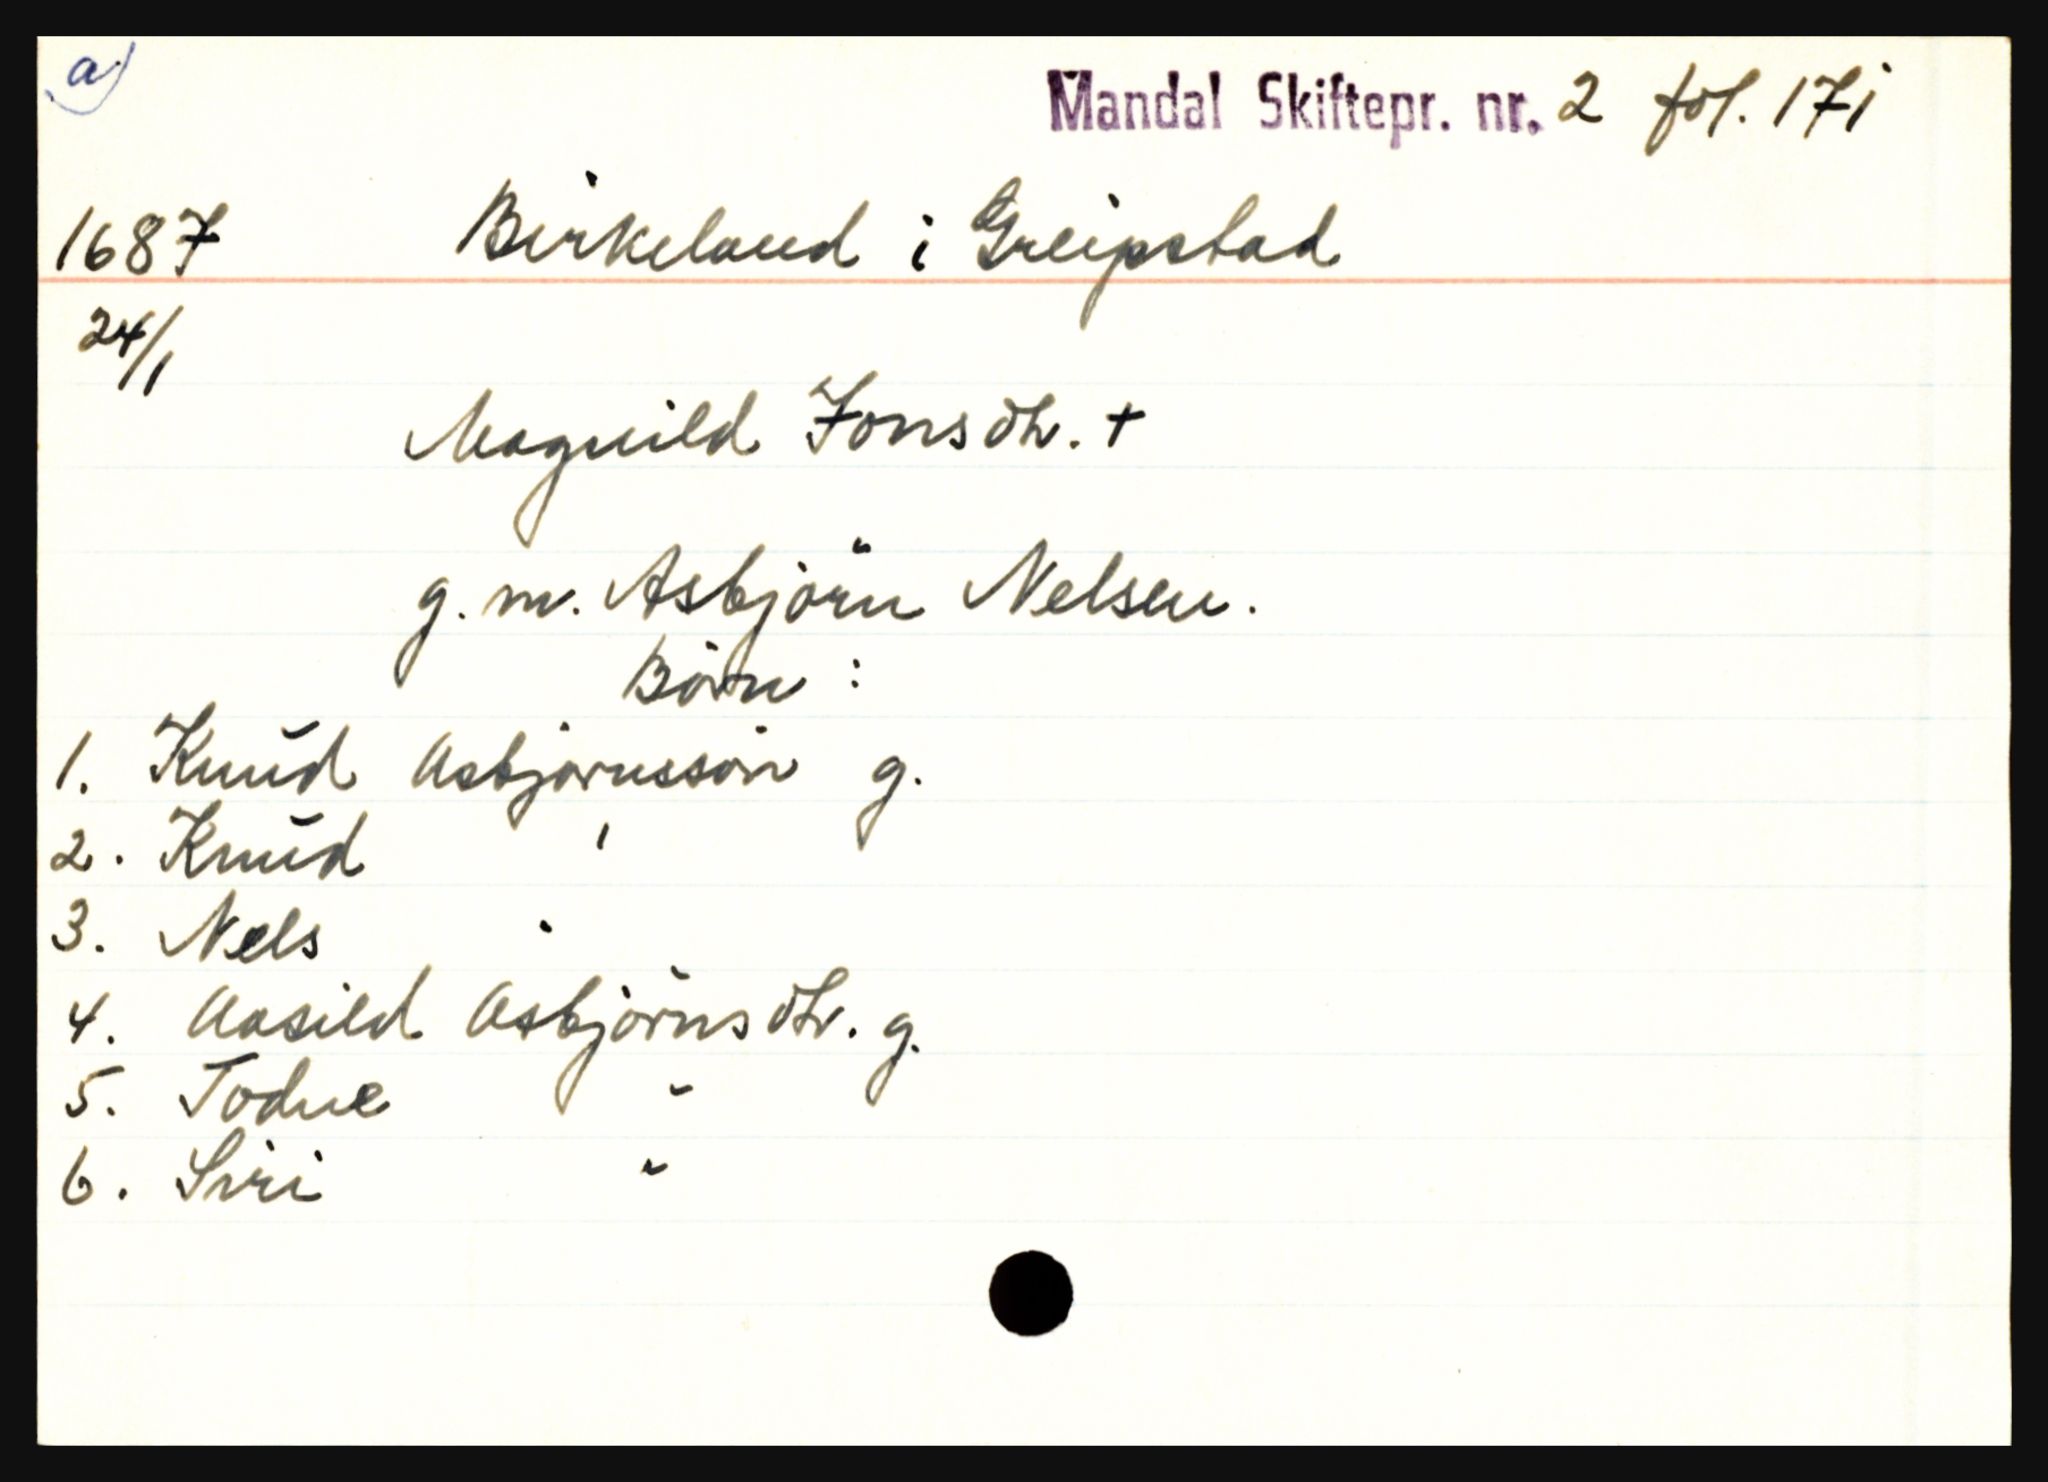 a)
Mandal Skiftepr. nr. 2 fol. 171
1687 Birkeland i Greipstad
24/1
Magnild Jonsdtr. +
g. m. Asbjörn Nelsen.
Börn :
1. Knud Asbjörnssön g.
2. Knud "
3. Nels "
4. Aasild Asbjörnsdtr. g.
5. Todne "
6. Siri "